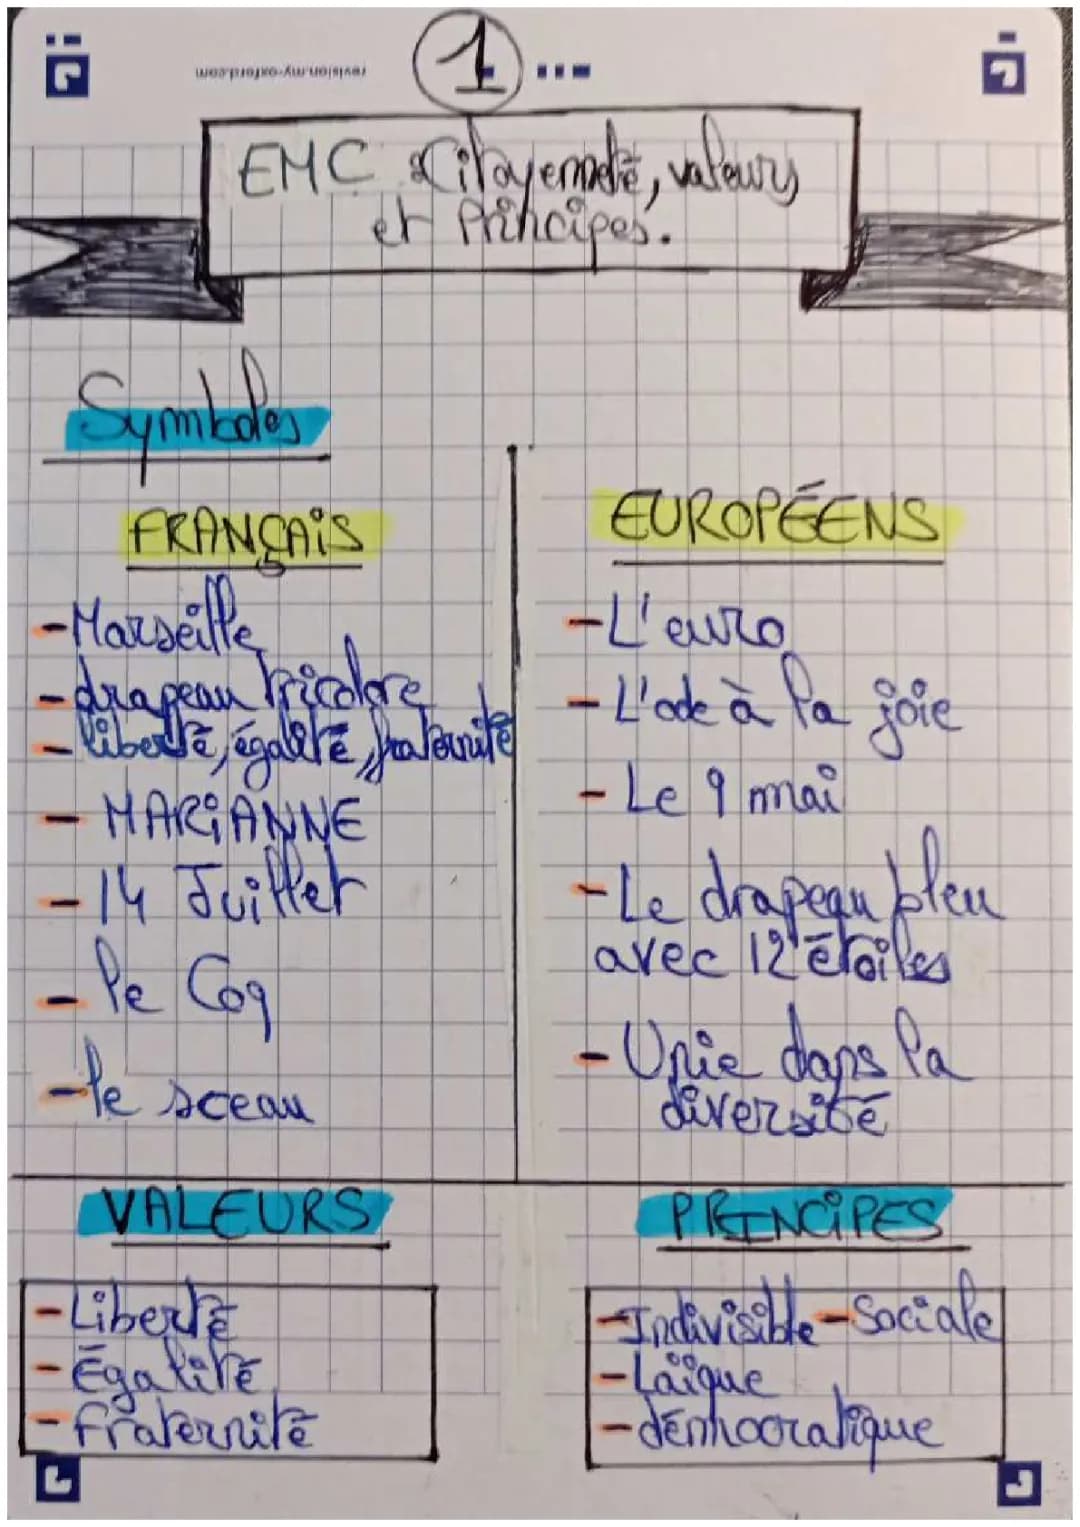 revision.my-oxford.com
1
EMC : Citoyenneté, valeurs
et Principes.
Symboles
FRANÇAIS
- Marseille
- drapeau tricolore
- liberté, égalité, fraternité
- MARIANNE
- 14 Juillet
- le Coq
- le sceau
EUROPÉENS
- L'euro
- L'ode à la joie
- Le 9 mai
- Le drapeau bleu
avec 12 étoiles
- Unie dans la
diversité
VALEURS
- Liberté
- Égalité
- fraternité
PRINCIPES
- Indivisible - Sociale
- Laïque
- démocratique